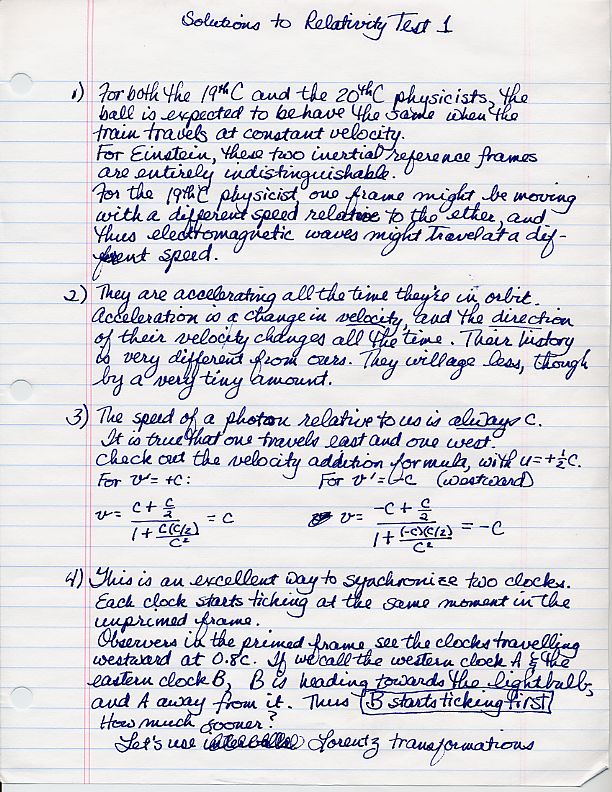 Solutions to Relativity Test 1
1) For both the 19th C and the 20th C physicists, the
ball is expected to behave the same when the
train travels at constant velocity.
For Einstein, these two inertial reference frames
are entirely indistinguishable.
For the 19th C physicist, one frame might be moving
with a different speed relative to the ether, and
thus electromagnetic waves might travel at a dif-
ferent speed.
2) They are accelerating all the time they're in orbit.
Acceleration is a change in velocity, and the direction
of their velocity changes all the time. Their history
is very different from ours. They will age less, though
by a very tiny amount.
3) The speed of a photon relative to us is always c.
It is true that one travels east and one west.
Check out the velocity addition formula, with u=+½c.
For v'=+c: For v'=-c (westward)
v = (c + c/2) / (1 + c(c/2)/c²) = c v = (-c + c/2) / (1 + (-c)(c/2)/c²) = -c
4) This is an excellent way to synchronize two clocks.
Each clock starts ticking at the same moment in the
unprimed frame.
Observers in the primed frame see the clocks travelling
westward at 0.8c. If we call the western clock A & the
eastern clock B, B is heading towards the lightbulb,
and A away from it. Thus B starts ticking first
How much sooner?
Let's use Lorentz transformations